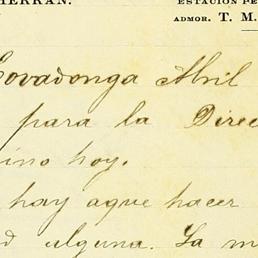 HERRAN.
ESTACIÓN PE
ADMOR. T. M.
Covadonga Abril
para la Direc
ino hoy.
hay aque hacer
d alguna. La m